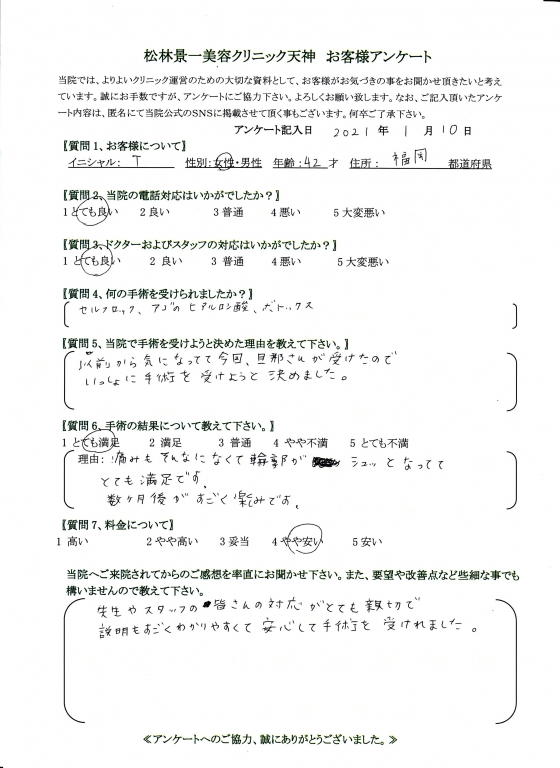 松林景一美容クリニック天神　お客様アンケート
当院では、よりよいクリニック運営のための大切な資料として、お客様がお気づきの事をお聞かせ頂きたいと考え
ています。誠にお手数ですが、アンケートにご協力下さい。よろしくお願い致します。なお、ご記入頂いたアンケ
ート内容は、匿名にて当院公式のSNSに掲載させて頂く事もございます。何卒ご了承下さい。
アンケート記入日　2021 年 1 月 10 日
【質問1、お客様について】
イニシャル： T　性別：女性・男性　年齢：42 才　住所： 福岡 都道府県
【質問2、当院の電話対応はいかがでしたか？】
1 とても良い　2 良い　3 普通　4 悪い　5 大変悪い
【質問3、ドクターおよびスタッフの対応はいかがでしたか？】
1 とても良い　2 良い　3 普通　4 悪い　5 大変悪い
【質問4、何の手術を受けられましたか？】
セルフロック、アゴのヒアルロン酸、ボトックス
【質問5、当院で手術を受けようと決めた理由を教えて下さい。】
以前から気になってて今回、旦那さんが受けたので
いっしょに手術を受けようと決めました。
【質問6、手術の結果について教えて下さい。】
1 とても満足　2 満足　3 普通　4 やや不満　5 とても不満
理由： 痛みもそんなになくて輪郭が シュッとなってて
とても満足です。
数ヶ月後がすごく楽しみです。
【質問7、料金について】
1 高い　2 やや高い　3 妥当　4 やや安い　5 安い
当院へご来院されてからのご感想を率直にお聞かせ下さい。また、要望や改善点など些細な事でも
構いませんので教えて下さい。
先生やスタッフの皆さんの対応がとても親切で
説明もすごくわかりやすくて安心して手術を受けれました。
≪アンケートへのご協力、誠にありがとうございました。≫